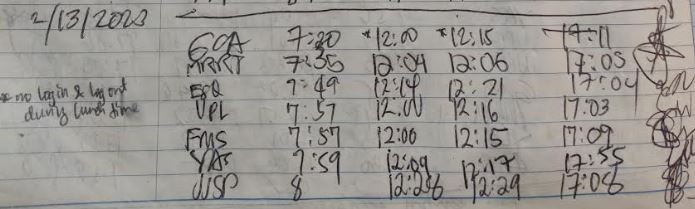 2/13/2023
GCA 7:20 *12:00 *12:15 17:11
MRRT 7:35 12:04 12:06 17:05
* no log in & log out
during lunch time
7:49 12:14 12:21 17:04
VPL 7:57 12:00 12:16 17:03
FMS 7:57 12:00 12:15 17:09
7:59 12:09 12:17 17:55
8 12:28 12:29 17:08